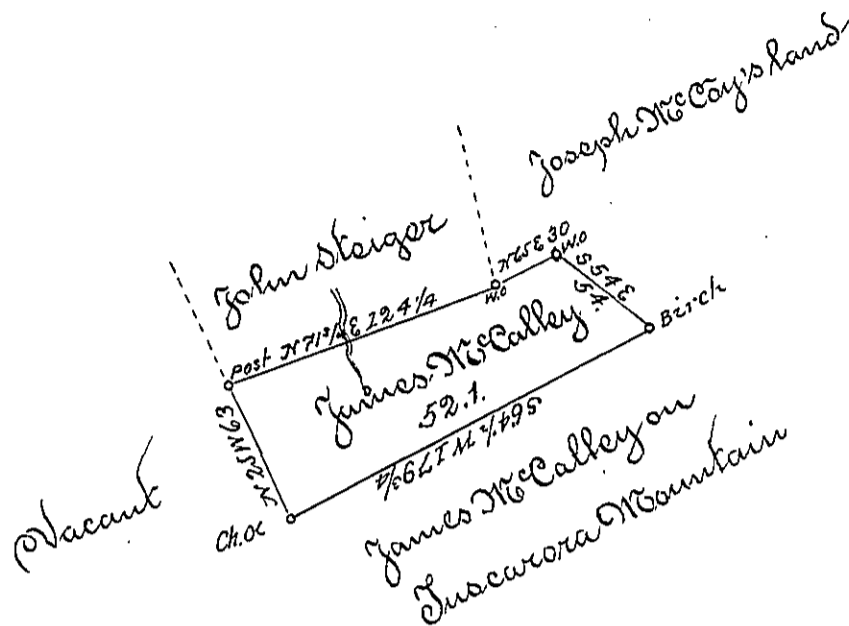 Joseph McCoy's land
John Steiger
N 25 E 30
W.O
W.O
S 54 E
54.
Post
N 71 3/4 E 124 1/4
Birch
James McCalley
52.1.
N 25 W 63
S 64 1/2 W 179 3/4
Vacant
Ch.O
James McCalley on
Tuscarora Mountain